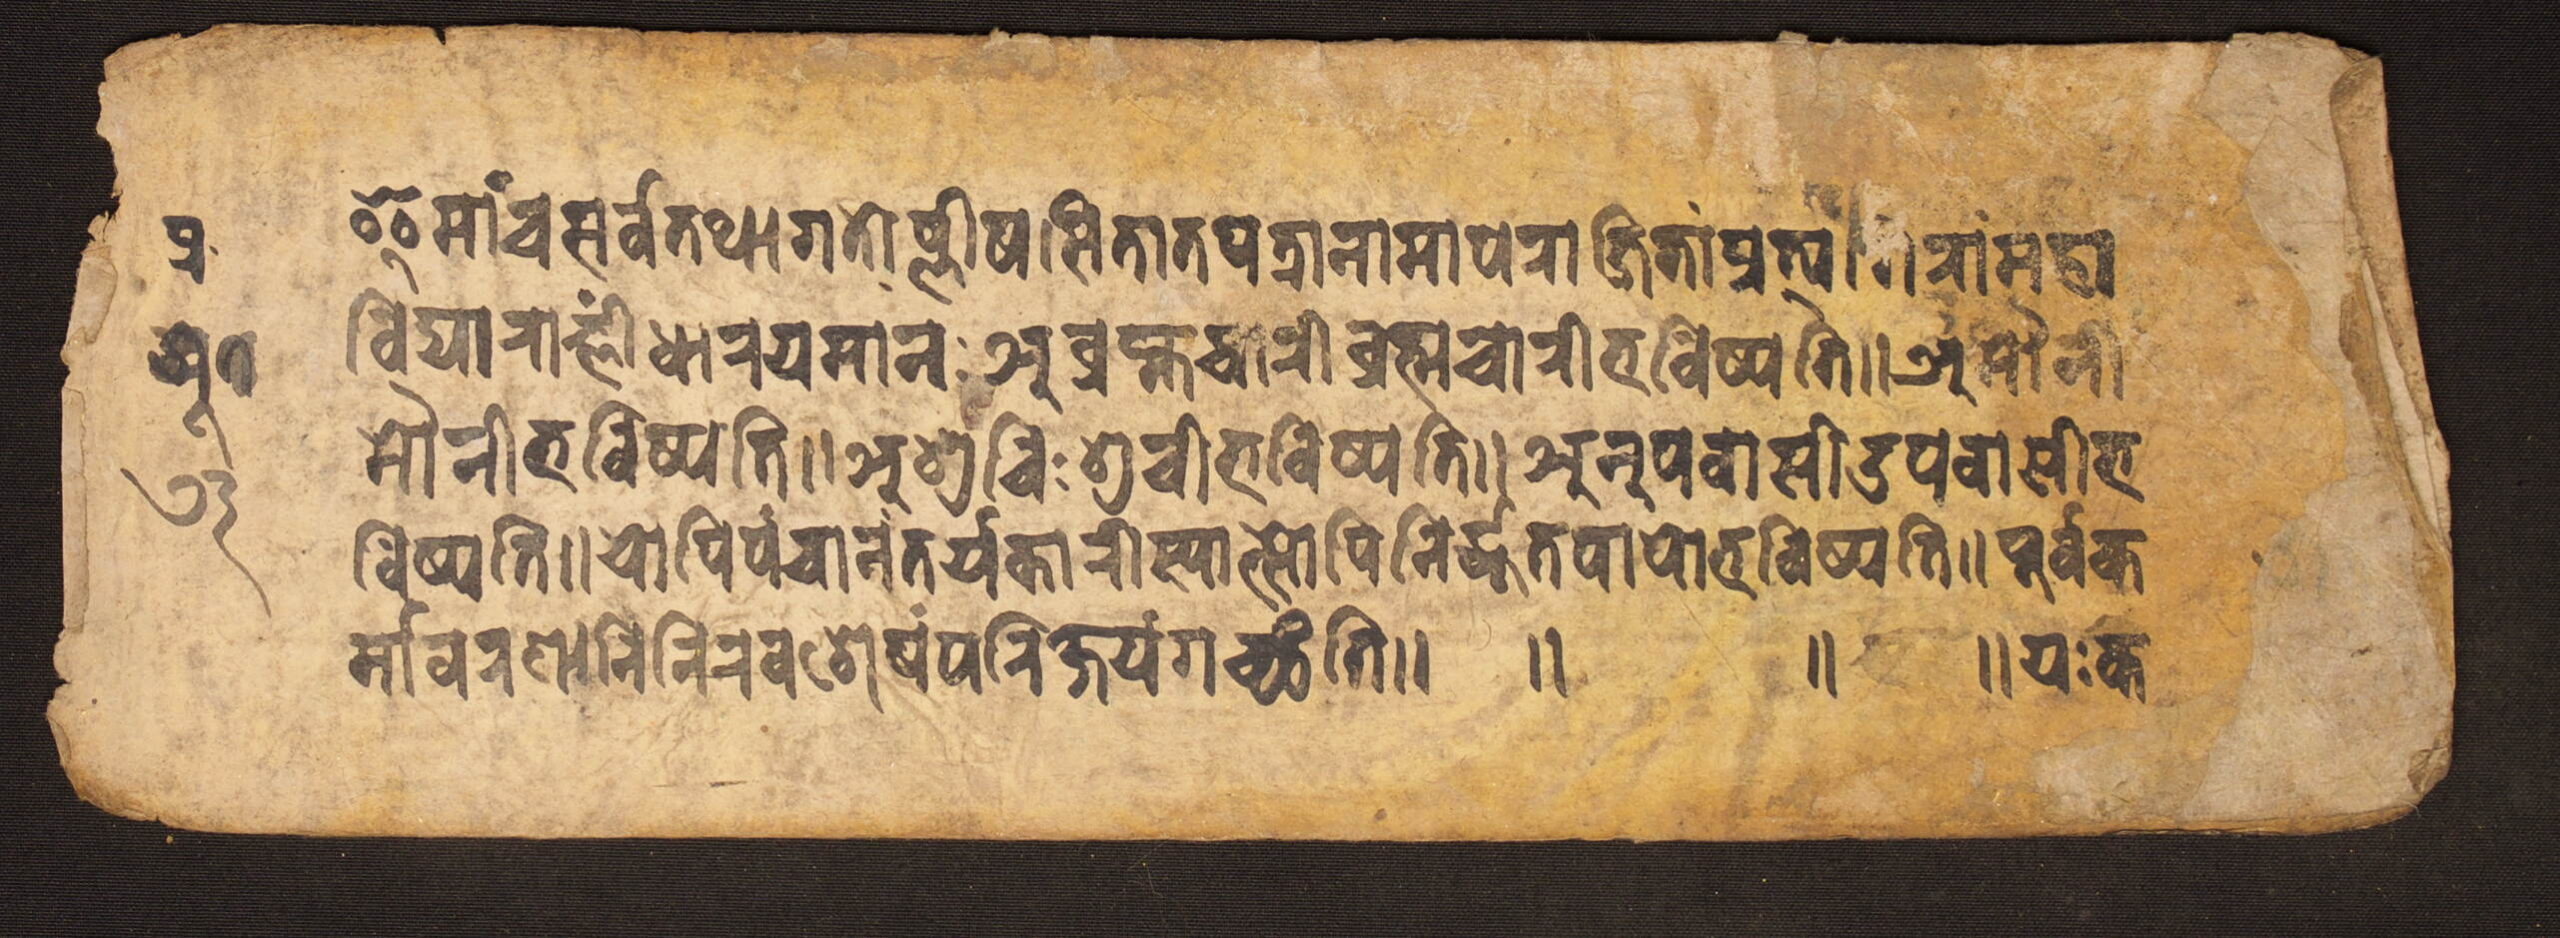 प्र
इमां च सर्वतथागतोष्णीषसितातपत्रानामापराजितां प्रत्यंगिरां महा
विद्याराज्ञीं धारयमानः अब्रह्मचारी ब्रह्मचारी भविष्यति॥ अमौनी
मौनी भविष्यति॥ अशुचिः शुची भविष्यति॥ अनुपवासी उपवासी भ
विष्यति॥ योपि पंचानंतर्यकारी स्यात्सोपि निर्द्धूतपापो भविष्यति॥ पूर्वक
र्मावरणानि निरवशेषं परिक्षयं गच्छंति॥ ॥ ॥ ॥ यः क